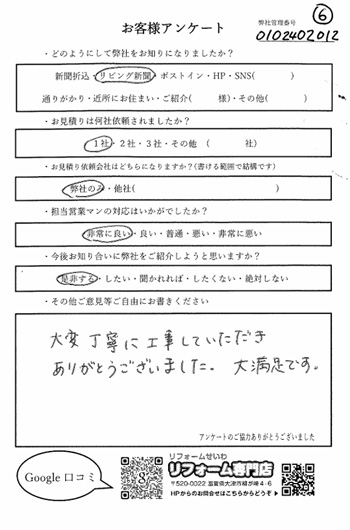 ⑥
お客様アンケート
弊社管理番号
0102402012
・どのようにして弊社をお知りになりましたか?
新聞折込・リビング新聞・ポストイン・HP・SNS( )
通りがかり・近所にお住まい・ご紹介( 様)・その他( )
・お見積りは何社依頼されましたか?
1社・2社・3社・その他 ( 社)
・お見積り依頼会社はどちらになりますか?(書ける範囲で結構です)
弊社のみ・他社( )
・担当営業マンの対応はいかがでしたか?
非常に良い・良い・普通・悪い・非常に悪い
・今後お知り合いに弊社をご紹介しようと思いますか?
是非する・したい・聞かれれば・したくない・絶対しない
・その他ご意見等ご自由にお書きください
大変丁寧に工事していただき
ありがとうございました。大満足です。
アンケートのご協力ありがとうございました
Google 口コミ
リフォームせいわ
リフォーム専門店
〒520-0022 滋賀県大津市柳が崎4-6
HPからのお問合せはこちらからどうぞ